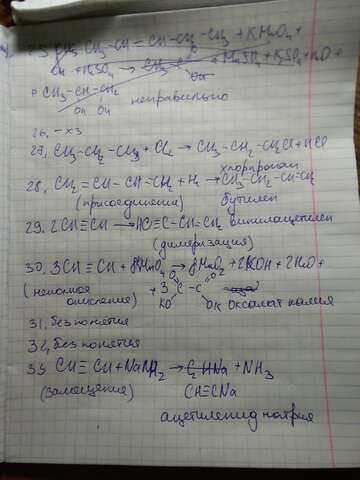 CH₃ CH₂-CH=CH-CH₂-CH₃ + KMnO₄ +
+ H₂SO₄ → + MnSO₄ + K₂SO₄ + H₂O +
CH₃-CH-CH₂
OH OH неправильно
26. - хз
27. CH₃-CH₂-CH₃ + Cl₂ → CH₃-CH₂-CH₂Cl + HCl
хлорпропан
28. CH₂=CH-CH=CH₂ + H₂ → CH₃-CH₂-CH=CH₂
(присоединения) бутилен
29. 2CH≡CH → HC≡C-CH=CH₂ винилацетилен
(димеризация)
30. 3CH≡CH + 8KMnO₄ → 8MnO₂ + 2KOH + 2H₂O +
(неполное + 3 O O
окисление) C-C
KO OK Оксалат калия
31. без понятия
32. без понятия
33 CH≡CH + NaNH₂ → C₂HNa + NH₃
(замещение) CH≡CNa
ацетиленид натрия